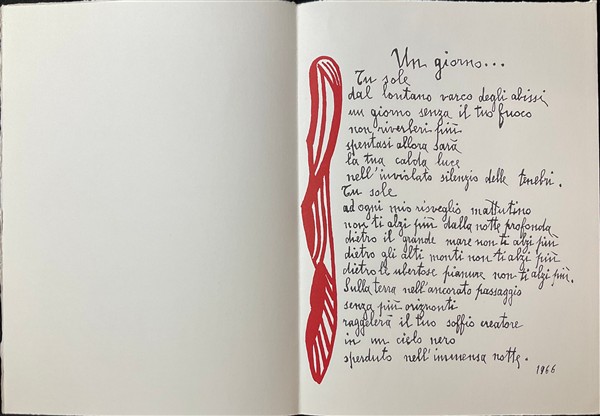 Un giorno...
Tu sole
dal lontano varco degli abissi
un giorno senza il tuo fuoco
non riverberi più
spentasi allora sarà
la tua calda luce
nell'inviolato silenzio delle tenebri.
Tu sole
ad ogni mio risveglio mattutino
non ti alzi più dalla notte profonda
dietro il grande mare non ti alzi più
dietro gli alti monti non ti alzi più
dietro le ubertose pianure non ti alzi più.
Sulla terra nell'ancorato passaggio
senza più orizzonti
raggelerà il tuo soffio creatore
in un cielo nero
sperduto nell'immensa notte.
1966